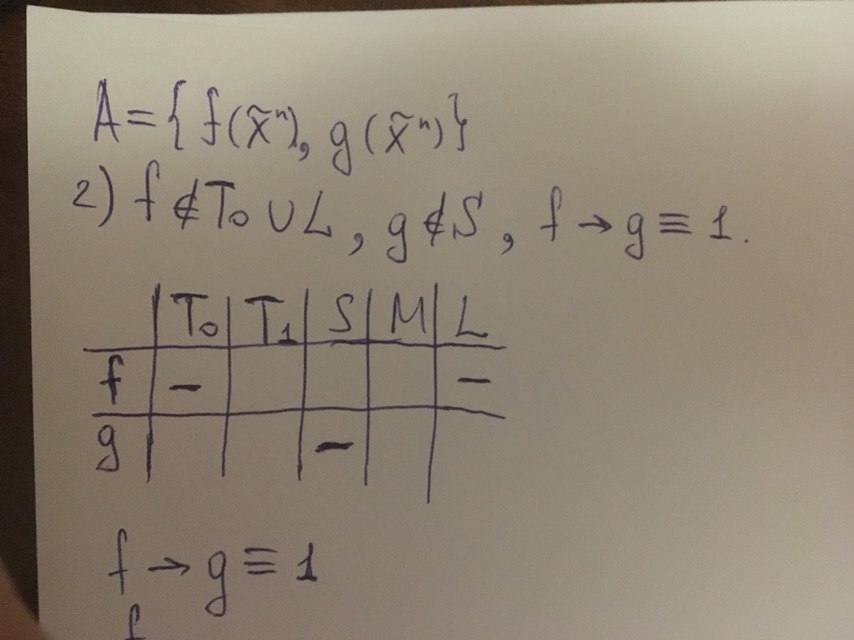 A = { f(x̃ⁿ), g(x̃ⁿ) }
2) f ∉ T₀ ∪ L, g ∉ S, f → g ≡ 1.
T₀ T₁ S M L
f − −
g −
f → g ≡ 1
f